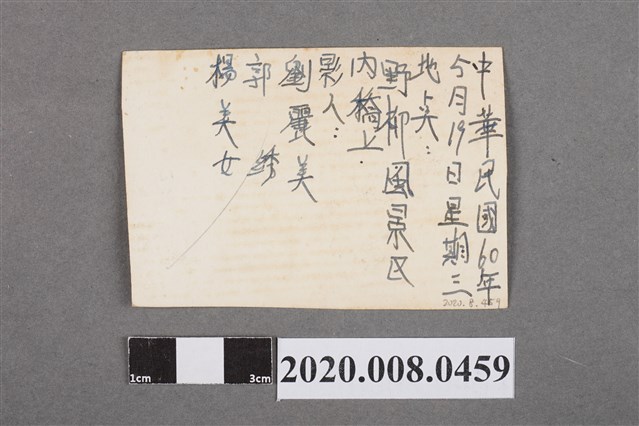 中華民國60年
5月19日星期三
地点：
野柳風景区
内橋上.
影人：
劉麗美
郭 綉
楊美女
2020.8.459
1cm
3cm
2020.008.0459